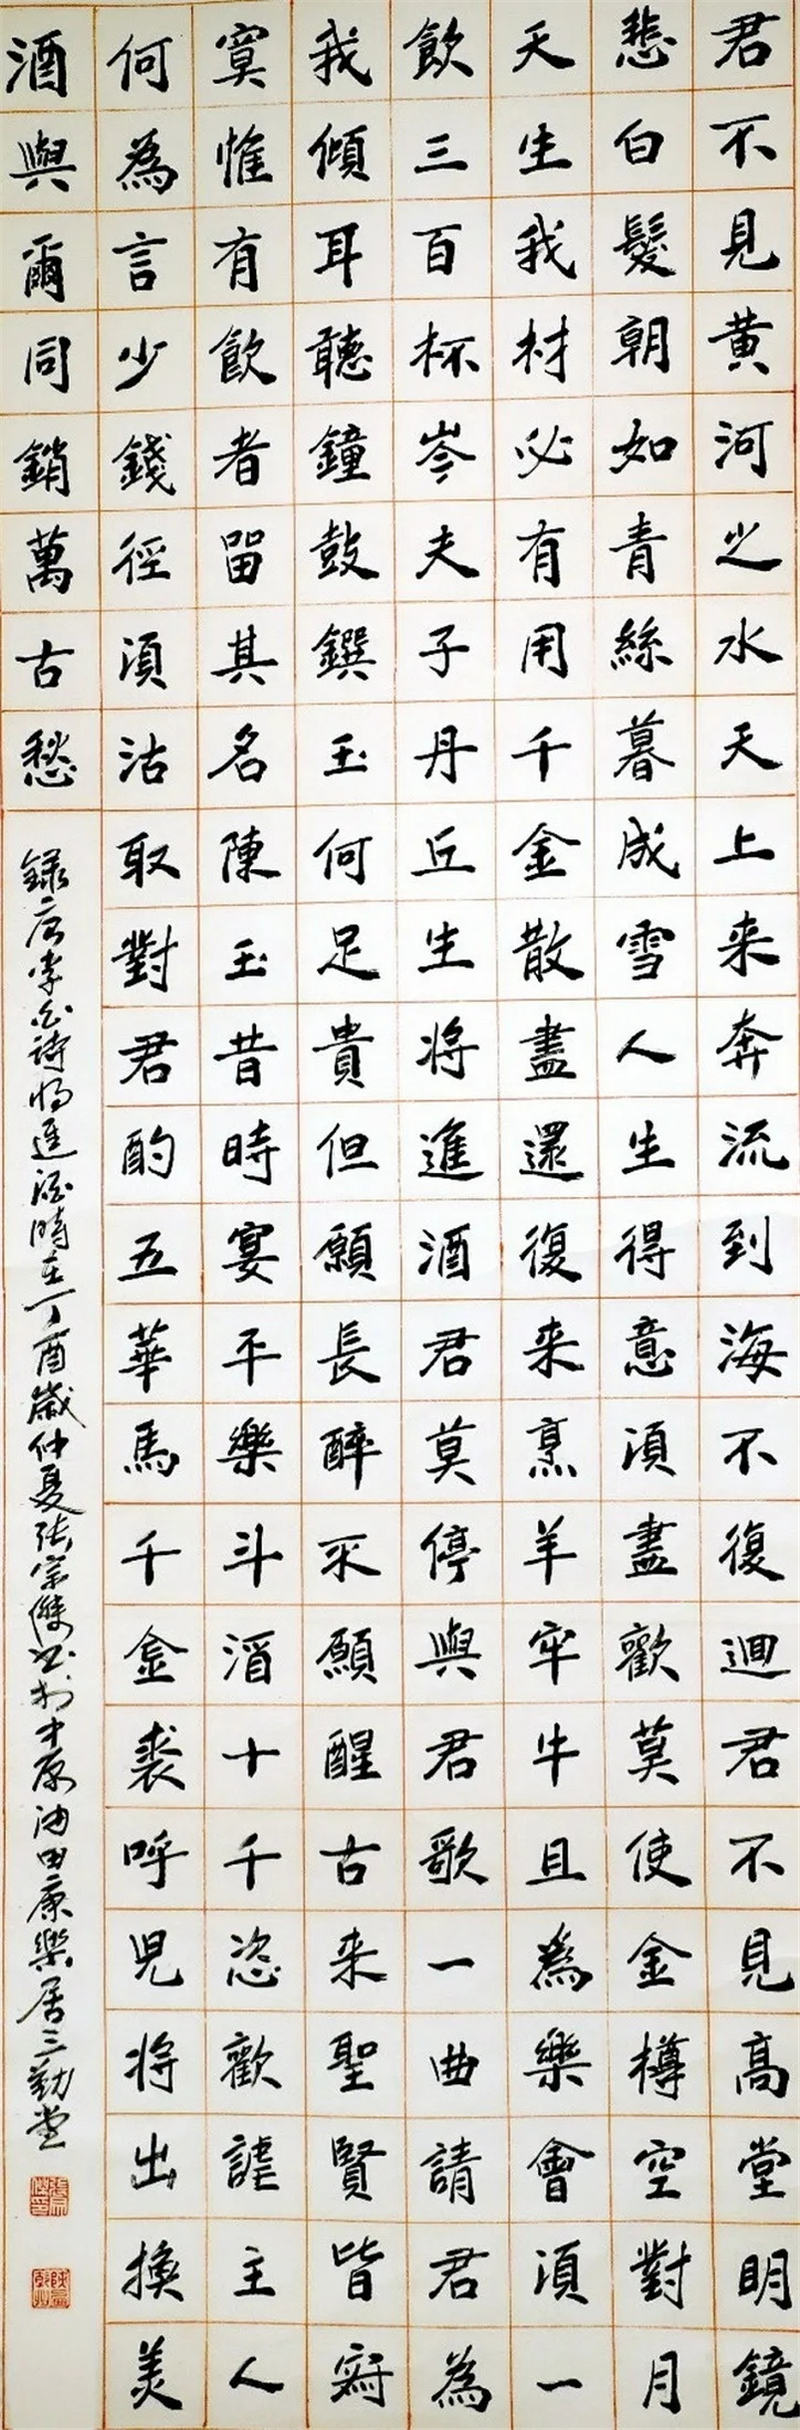 君不見黄河之水天上来奔流到海不復迴君不見高堂明鏡
悲白髮朝如青絲暮成雪人生得意須盡歡莫使金樽空對月
天生我材必有用千金散盡還復来烹羊宰牛且為樂會須一
飲三百杯岑夫子丹丘生将進酒君莫停與君歌一曲請君為
我傾耳聽鐘鼓饌玉何足貴但願長醉不願醒古来聖賢皆寂
寞惟有飲者留其名陳王昔時宴平樂斗酒十千恣歡謔主人
何為言少錢徑須沽取對君酌五華馬千金裘呼児将出換美
酒與爾同銷萬古愁
録唐李白詩将進酒時在丁酉歲仲夏張宗傑书於中原油田康樂居三勤堂